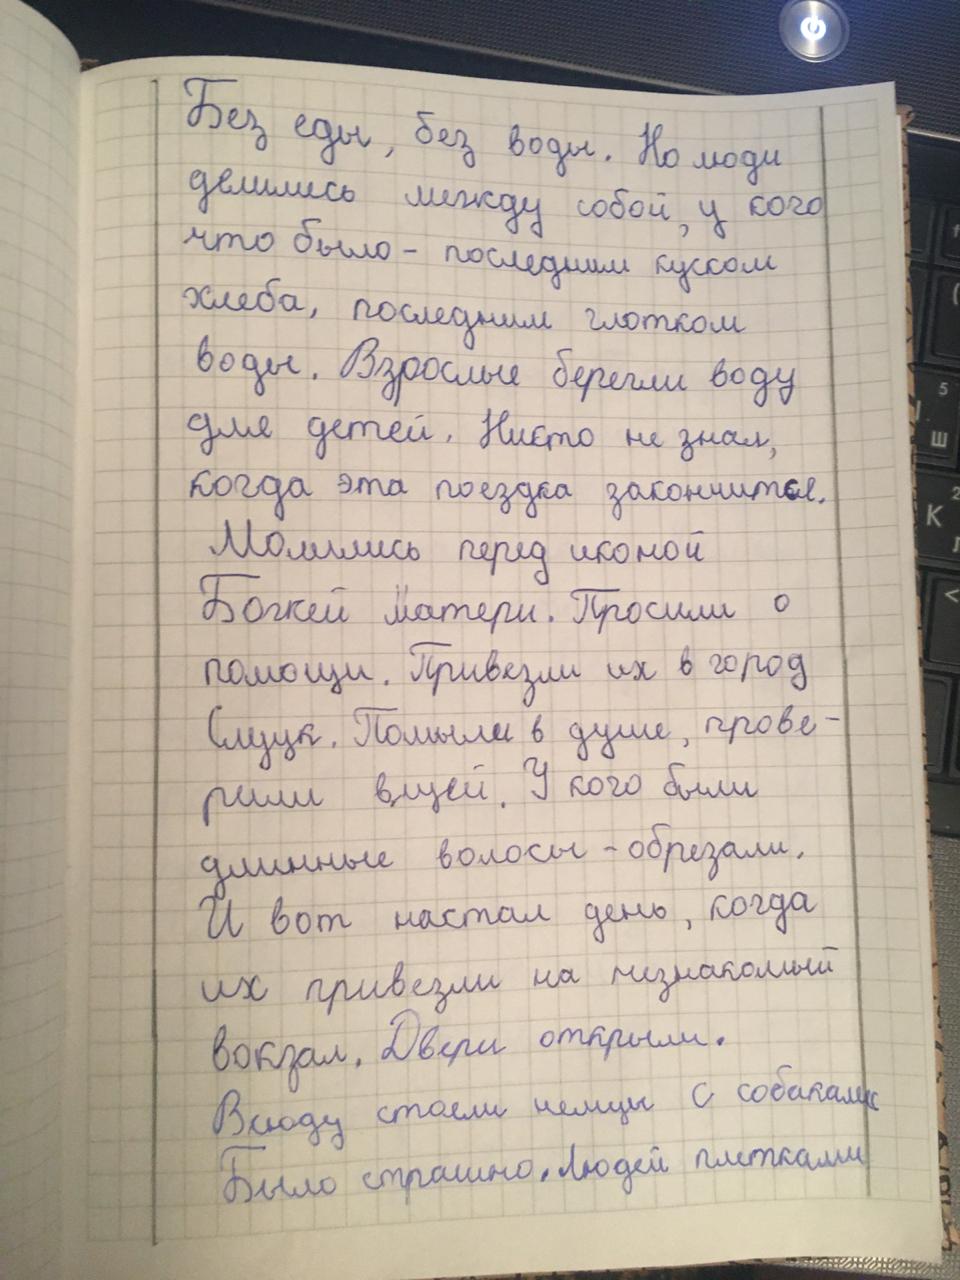 Без еды, без воды. Но люди
делились между собой, у кого
что было - последним куском
хлеба, последним глотком
воды. Взрослые берегли воду
для детей. Никто не знал,
когда эта поездка закончится.
Молились перед иконой
Божей Матери. Просили о
помощи. Привезли их в город
Слуцк. Помыли в душе, прове-
рили вшей. У кого были
длинные волосы - обрезали.
И вот настал день, когда
их привезли на незнакомый
вокзал. Двери открыли.
Всюду стояли немцы с собаками
Было страшно. Людей плетками
5
Ш
К
<